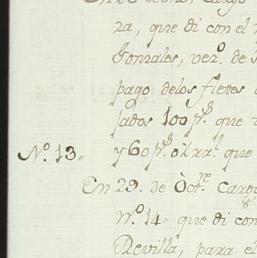 za, que di con el
Gonzales, vez.º de
pago delos fletes
lados 100 p.s que
Nº. 13,, y 60 p.s que
En 29. de Oct.re Cargo
Nº 14,, que di con
Revilla, para el